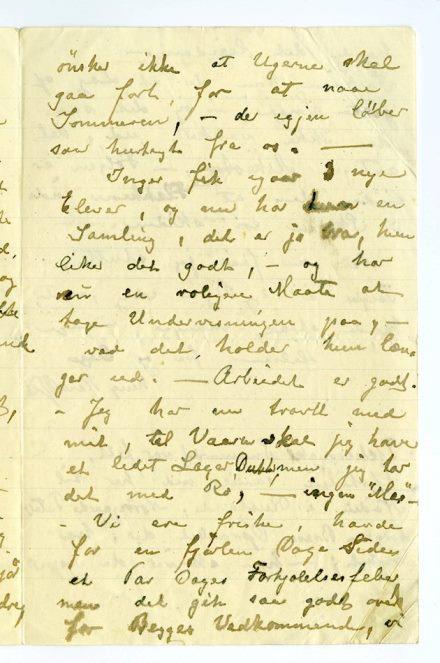 ønsker ikke at Ugerne skal
gaa fort, for at naae
Sommeren, – de igjen løber
saa hurtigt fra os. —
Inger fik igaar 3 nye
Elever, og nu har hun en
Samling, det er jo bra, hun
liker det godt, – og har
nu en roligere Maate at
tage Undervisningen paa, –
ved det holder hun læn-
ger ud. – Arbeidet er godt.
– Jeg har nu travlt med
mit, til Vaaren skal jeg have
et lidet Lager, men jeg tar
det med Ro, – ingen "Mas" –
– Vi ere friske, havde
for en fjorten Dage Siden
et Par Dages Forkjølelsesfeber
men det gik saa godt over
for Begges Vedkommende, vi